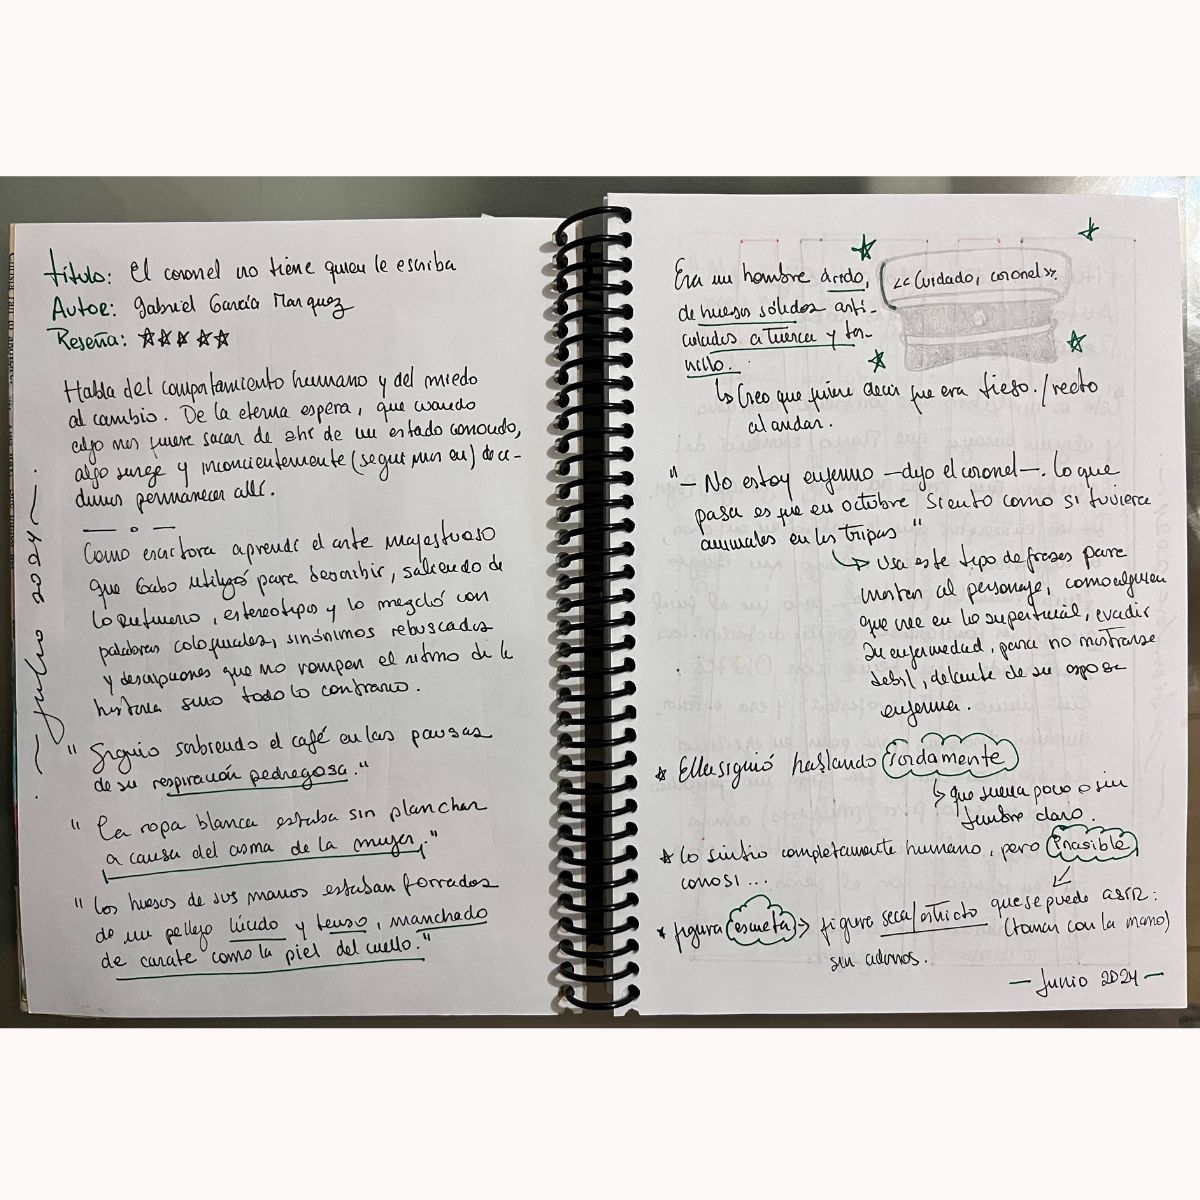 Título: El coronel no tiene quien le escriba
Autor: Gabriel García Marquez
Reseña: ☆☆☆☆☆
Habla del comportamiento humano y del miedo
al cambio. De la eterna espera, que cuando
algo nos quiere sacar de ahí de un estado conocido,
algo surge y inconcientemente (segui mos en) deci-
dimos permanecer allí.
— o —
Como escritora aprendí el arte majestuoso
que Gabo utilizó para describir, saliendo de
lo rutinario, estereotipos y lo mezcló con
palabras coloquiales, sinónimos rebuscados
y descripciones que no rompen el ritmo de la
historia sino todo lo contrario.
"Siguio sorbiendo el café en las pausas
de su respiración pedregosa."
"La ropa blanca estaba sin planchar
a causa del asma de la mujer."
"Los huesos de sus manos estaban forrados
de un pellejo lúcido y tenso, manchado
de carate como la piel del cuello."
— Julio 2024 —
Era un hombre árido,
de huesos sólidos arti-
culados a tuerca y tor-
nillo.
<<Cuidado, coronel>>.
↳ Creo que quiere decir que era tieso./recto
al andar.
"— No estoy enfermo —dijo el coronel—. Lo que
pasa es que en octubre siento como si tuviera
animales en las tripas"
↳ Usa este tipo de frases para
mostrar al personaje, como alguien
que cree en lo superficial, evadir
su enfermedad, para no mostrarse
debil, delante de su esposa
enferma.
* Ella siguió hablando sordamente
↳ que suena poco o sin
timbre claro.
* Lo sintio completamente humano, pero inasible
como si...
que se puede asir:
(tomar con la mano)
* figura escueta → figura seca/estricto
sin adornos.
— Junio 2024 —